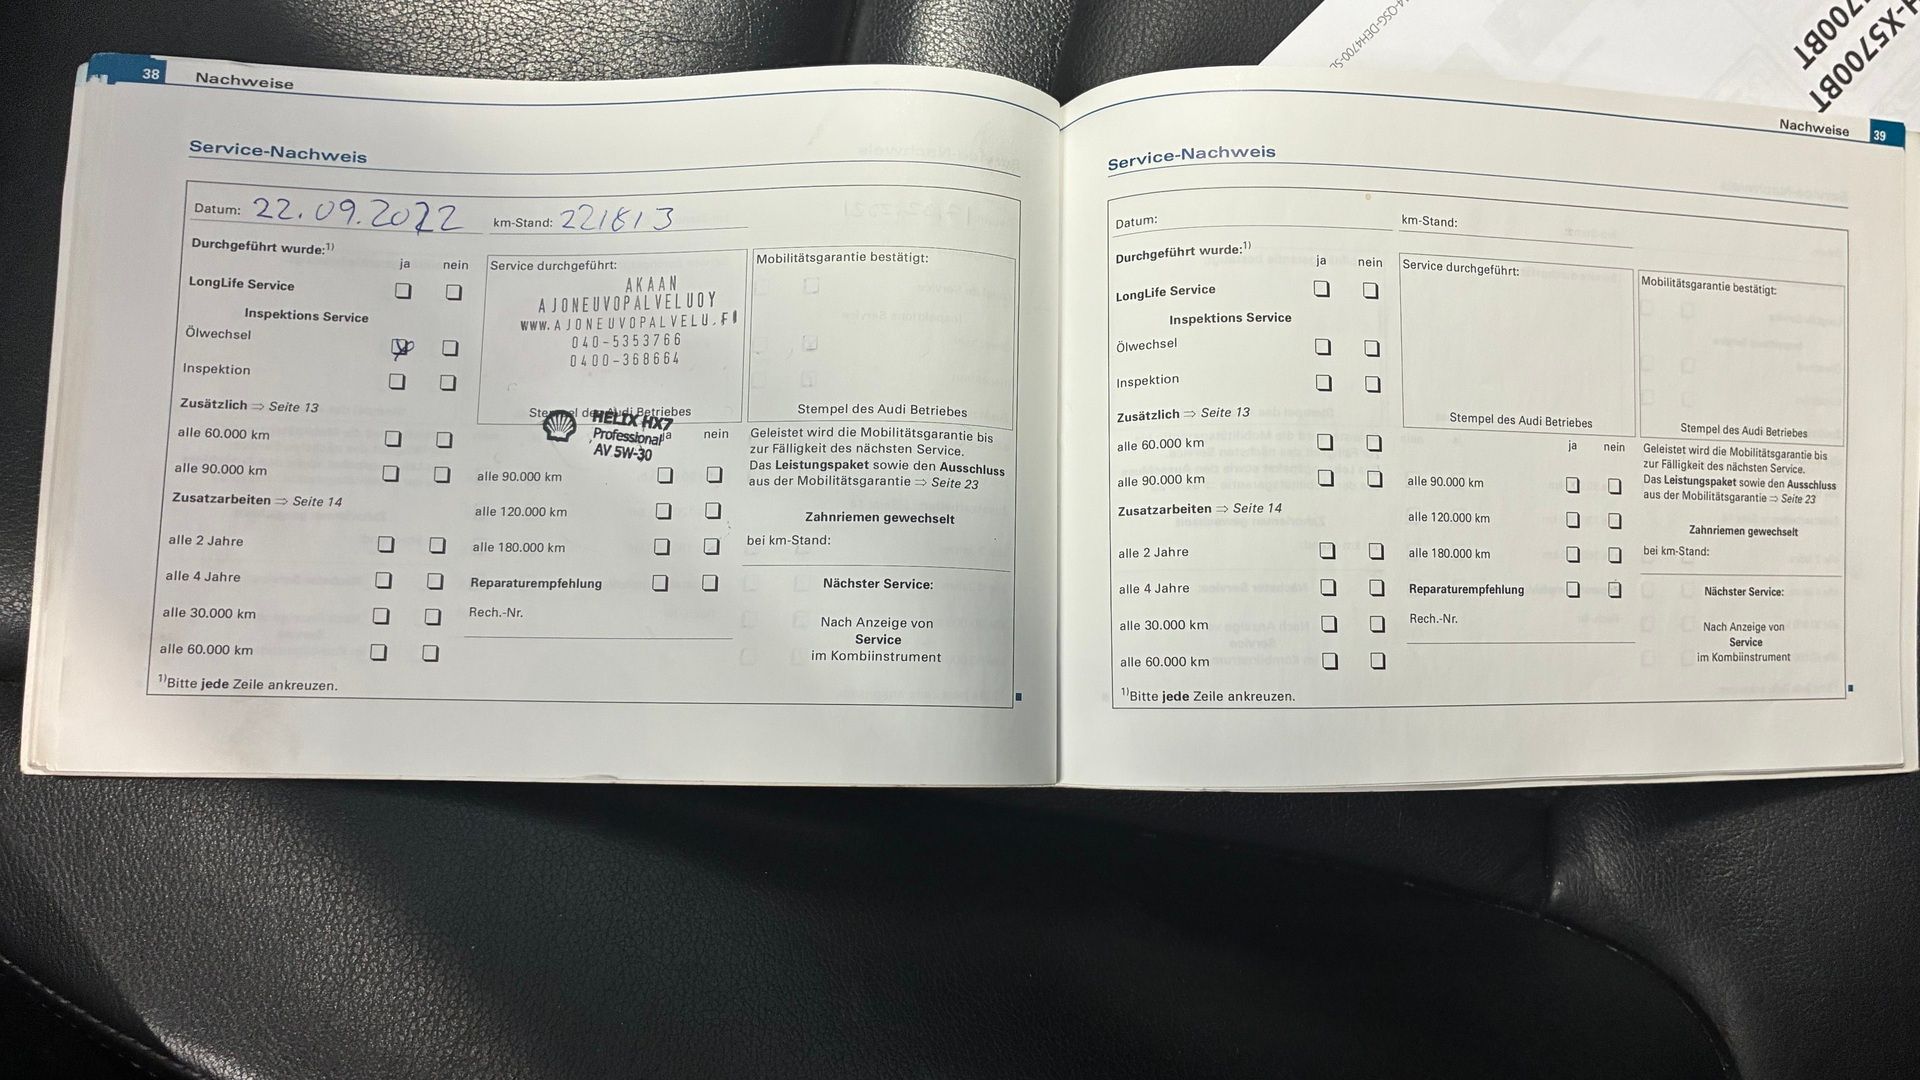 38 Nachweise
Service-Nachweis
Datum: 22.09.2022 km-Stand: 221813
Durchgeführt wurde:1)
ja nein
LongLife Service
Inspektions Service
Ölwechsel
Inspektion
Zusätzlich ⇒ Seite 13
alle 60.000 km
alle 90.000 km
Zusatzarbeiten ⇒ Seite 14
alle 2 Jahre
alle 4 Jahre
alle 30.000 km
alle 60.000 km
1)Bitte jede Zeile ankreuzen.
Service durchgeführt:
AKAAN
AJONEUVOPALVELUOY
WWW.AJONEUVOPALVELU.FI
040-5353766
0400-368664
Stempel des Audi Betriebes
HELIX HX7
Professional
AV 5W-30
ja nein
alle 90.000 km
alle 120.000 km
alle 180.000 km
Reparaturempfehlung
Rech.-Nr.
Mobilitätsgarantie bestätigt:
Stempel des Audi Betriebes
Geleistet wird die Mobilitätsgarantie bis
zur Fälligkeit des nächsten Service.
Das Leistungspaket sowie den Ausschluss
aus der Mobilitätsgarantie ⇒ Seite 23
Zahnriemen gewechselt
bei km-Stand:
Nächster Service:
Nach Anzeige von
Service
im Kombiinstrument
Nachweise 39
Service-Nachweis
Datum: km-Stand:
Durchgeführt wurde:1)
ja nein
LongLife Service
Inspektions Service
Ölwechsel
Inspektion
Zusätzlich ⇒ Seite 13
alle 60.000 km
alle 90.000 km
Zusatzarbeiten ⇒ Seite 14
alle 2 Jahre
alle 4 Jahre
alle 30.000 km
alle 60.000 km
1)Bitte jede Zeile ankreuzen.
Service durchgeführt:
Stempel des Audi Betriebes
ja nein
alle 90.000 km
alle 120.000 km
alle 180.000 km
Reparaturempfehlung
Rech.-Nr.
Mobilitätsgarantie bestätigt:
Stempel des Audi Betriebes
Geleistet wird die Mobilitätsgarantie bis
zur Fälligkeit des nächsten Service.
Das Leistungspaket sowie den Ausschluss
aus der Mobilitätsgarantie ⇒ Seite 23
Zahnriemen gewechselt
bei km-Stand:
Nächster Service:
Nach Anzeige von
Service
im Kombiinstrument